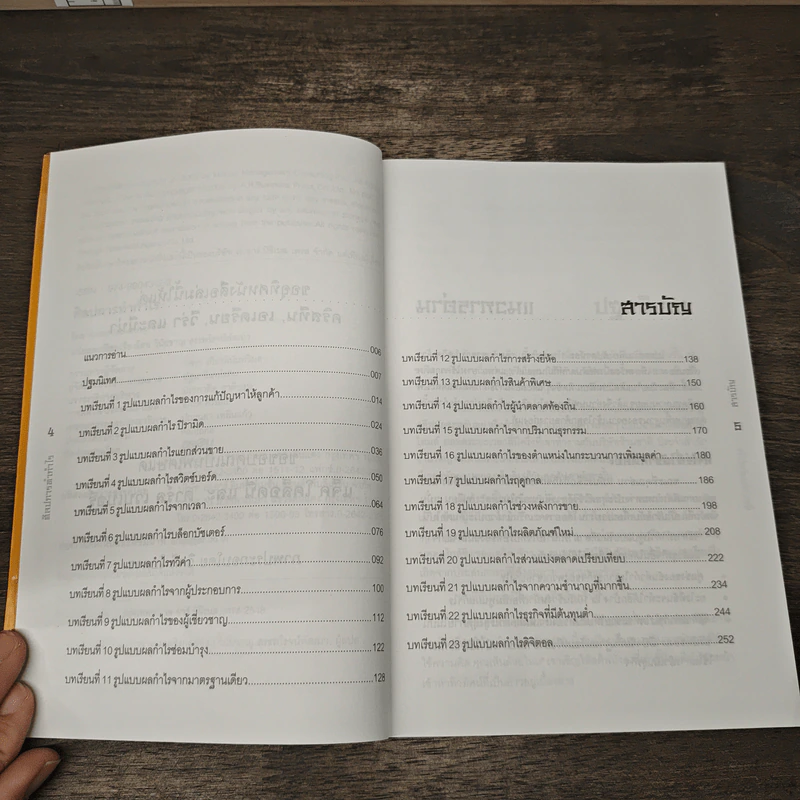 แนวการอ่าน....................006
ปฐมนิเทศ....................007
บทเรียนที่ 1 รูปแบบผลกำไรของการแก้ปัญหาให้ลูกค้า....................014
บทเรียนที่ 2 รูปแบบผลกำไร ปิรามิด....................024
บทเรียนที่ 3 รูปแบบผลกำไรแยกส่วนขาย....................036
บทเรียนที่ 4 รูปแบบผลกำไรสวิตช์บอร์ด....................050
บทเรียนที่ 5 รูปแบบผลกำไรจากเวลา....................064
บทเรียนที่ 6 รูปแบบผลกำไรบล็อกบัซเตอร์....................076
บทเรียนที่ 7 รูปแบบผลกำไรทวีค่า....................092
บทเรียนที่ 8 รูปแบบผลกำไรจากผู้ประกอบการ....................100
บทเรียนที่ 9 รูปแบบผลกำไรของผู้เชี่ยวชาญ....................112
บทเรียนที่ 10 รูปแบบผลกำไรซ่อมบำรุง....................122
บทเรียนที่ 11 รูปแบบผลกำไรจากมาตรฐานเดียว....................128
4
ศิลปะการทำกำไร
สารบัญ
บทเรียนที่ 12 รูปแบบผลกำไรการสร้างยี่ห้อ....................138
บทเรียนที่ 13 รูปแบบผลกำไรสินค้าพิเศษ....................150
บทเรียนที่ 14 รูปแบบผลกำไรผู้นำตลาดท้องถิ่น....................160
บทเรียนที่ 15 รูปแบบผลกำไรจากปริมาณธุรกรรม....................170
บทเรียนที่ 16 รูปแบบผลกำไรของตำแหน่งในกระบวนการเพิ่มมูลค่า..........180
บทเรียนที่ 17 รูปแบบผลกำไรฤดูกาล....................186
บทเรียนที่ 18 รูปแบบผลกำไรช่วงหลังการขาย....................198
บทเรียนที่ 19 รูปแบบผลกำไรผลิตภัณฑ์ใหม่....................208
บทเรียนที่ 20 รูปแบบผลกำไรส่วนแบ่งตลาดเปรียบเทียบ....................222
บทเรียนที่ 21 รูปแบบผลกำไรจากความชำนาญที่มากขึ้น....................234
บทเรียนที่ 22 รูปแบบผลกำไรธุรกิจที่มีต้นทุนต่ำ....................244
บทเรียนที่ 23 รูปแบบผลกำไรดิจิตอล....................252
สารบัญ
5